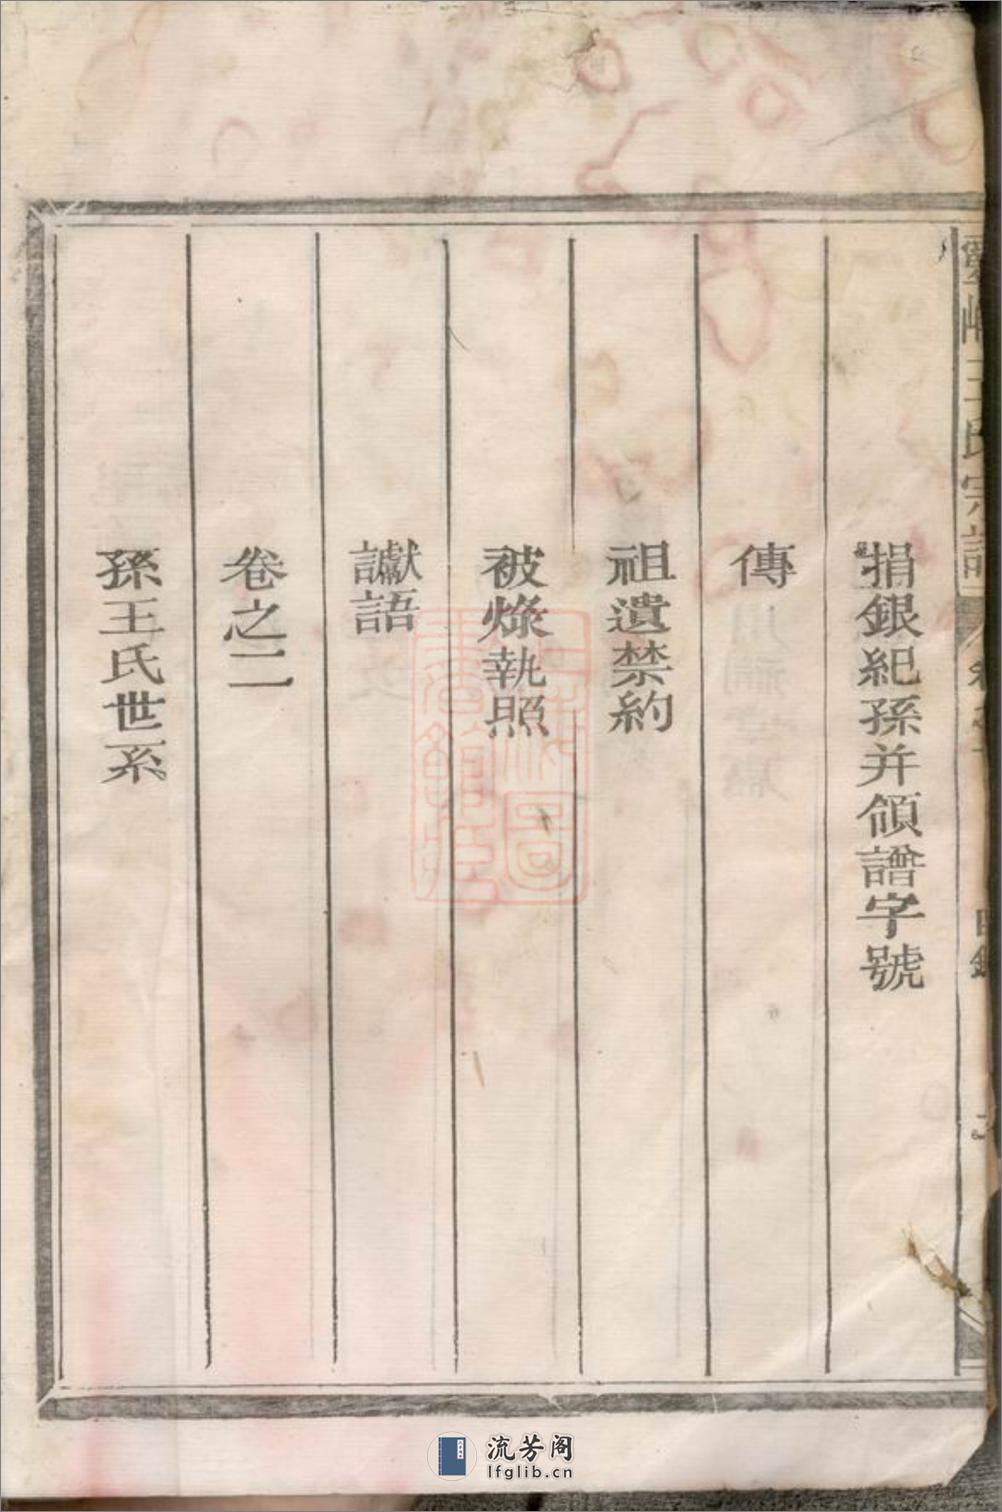 捐銀紀孫并領譜字號
傳
祖遺禁約
被燬執照
讞語
卷之二
孫王氏世系
王氏宗譜
目錄
流芳阁
lfglib.cn